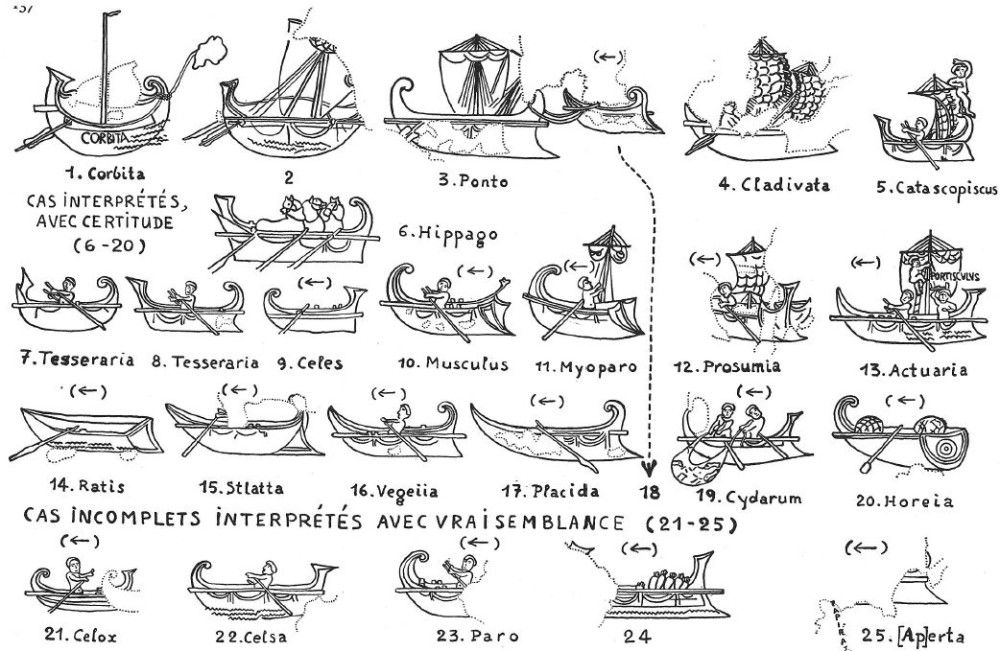 CORBITA
1. Corbita
2
3. Ponto
(←)
4. Cladivata
5. Catascopiscus
CAS INTERPRÉTÉS,
AVEC CERTITUDE
(6-20)
6. Hippago
7. Tesseraria
8. Tesseraria
(←)
9. Celes
(←)
10. Musculus
(←)
11. Myoparo
(←)
12. Prosumia
(←)
PORTISCULUS
13. Actuaria
(←)
14. Ratis
(←)
15. Stlatta
(←)
16. Vegeiia
(←)
17. Placida
18
(←)
19. Cydarum
(←)
20. Horeia
CAS INCOMPLETS INTERPRÉTÉS AVEC VRAISEMBLANCE (21-25)
(←)
21. Celox
(←)
22. Celsa
(←)
23. Paro
(←)
24
(←)
25. [Ap]erta